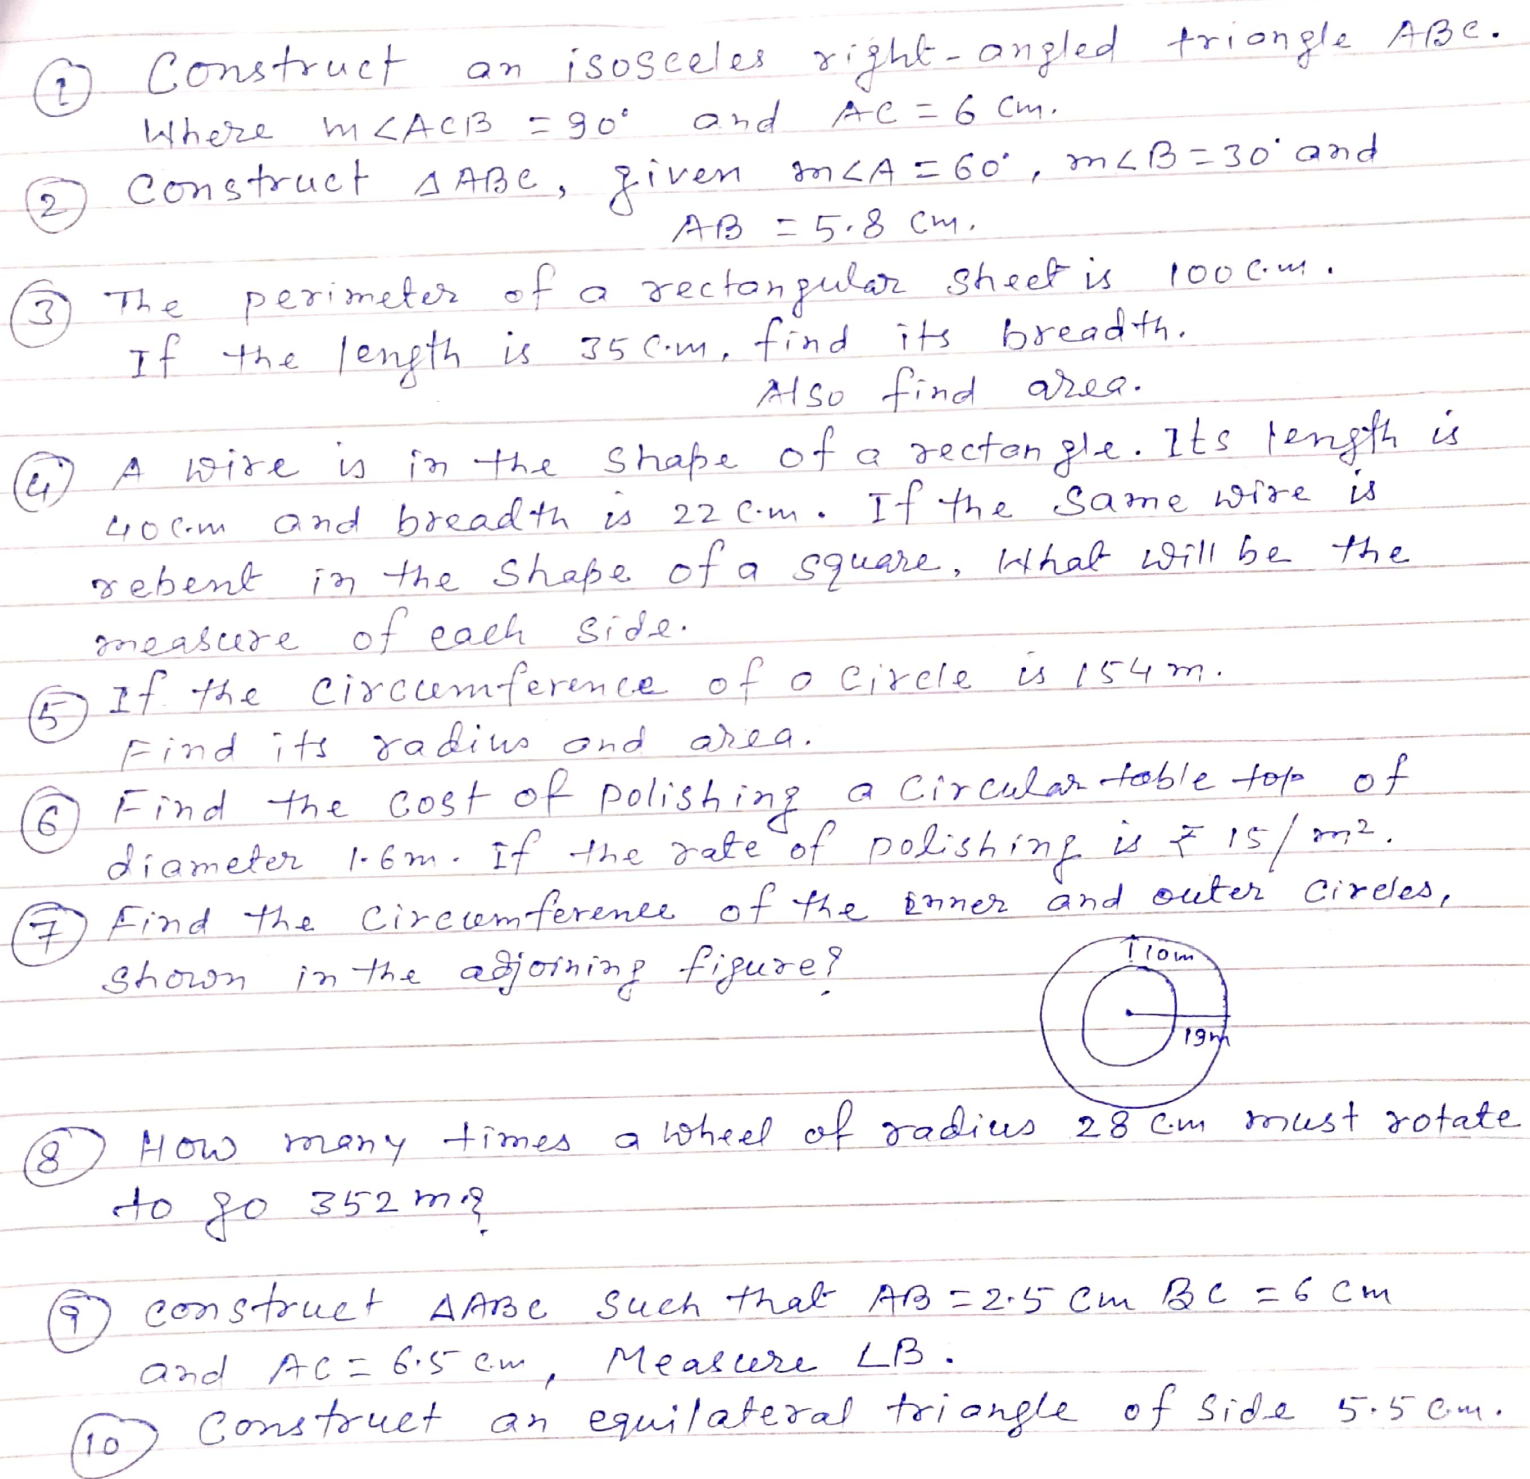 ① Construct an isosceles right-angled triangle ABC.
Where m∠ACB = 90° and AC = 6 cm.
② Construct △ABC, given m∠A = 60°, m∠B = 30° and
AB = 5.8 cm.
③ The perimeter of a rectangular sheet is 100 c.m.
If the length is 35 c.m, find its breadth.
Also find area.
④ A wire is in the shape of a rectangle. Its length is
40 c.m and breadth is 22 c.m. If the same wire is
rebent in the shape of a square, What will be the
measure of each side.
⑤ If the circumference of a circle is 154 m.
Find its radius and area.
⑥ Find the cost of polishing a circular table top of
diameter 1.6 m. If the rate of polishing is ₹ 15/m².
⑦ Find the circumference of the inner and outer circles,
shown in the adjoining figure?
10m
19m
⑧ How many times a wheel of radius 28 c.m must rotate
to go 352 m?
⑨ construct △ABC such that AB = 2.5 cm BC = 6 cm
and AC = 6.5 cm, Measure ∠B.
⑩ Construct an equilateral triangle of side 5.5 c.m.